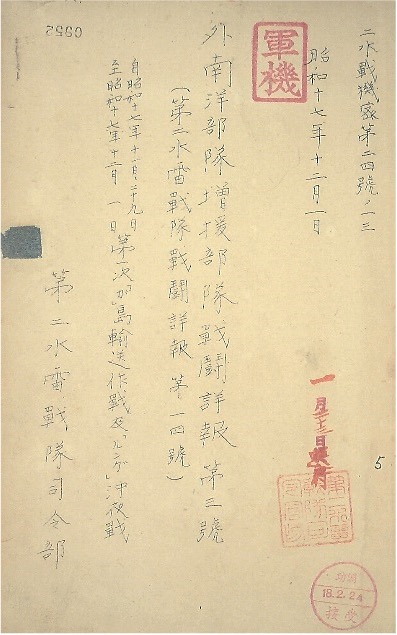 軍機
二水戰機密第二四號ノ一三
昭和十七年十二月一日
外南洋部隊増援部隊戰鬪詳報 第三號
(第二水雷戰隊戰鬪詳報 第一四號)
自昭和十七年十一月二十九日
至昭和十七年十二月 一日
第一次「ガ」島輸送作戰及「ルンガ」沖夜戰
第二水雷戰隊司令部
一月二十三日
5
18.2.24
接受
0952